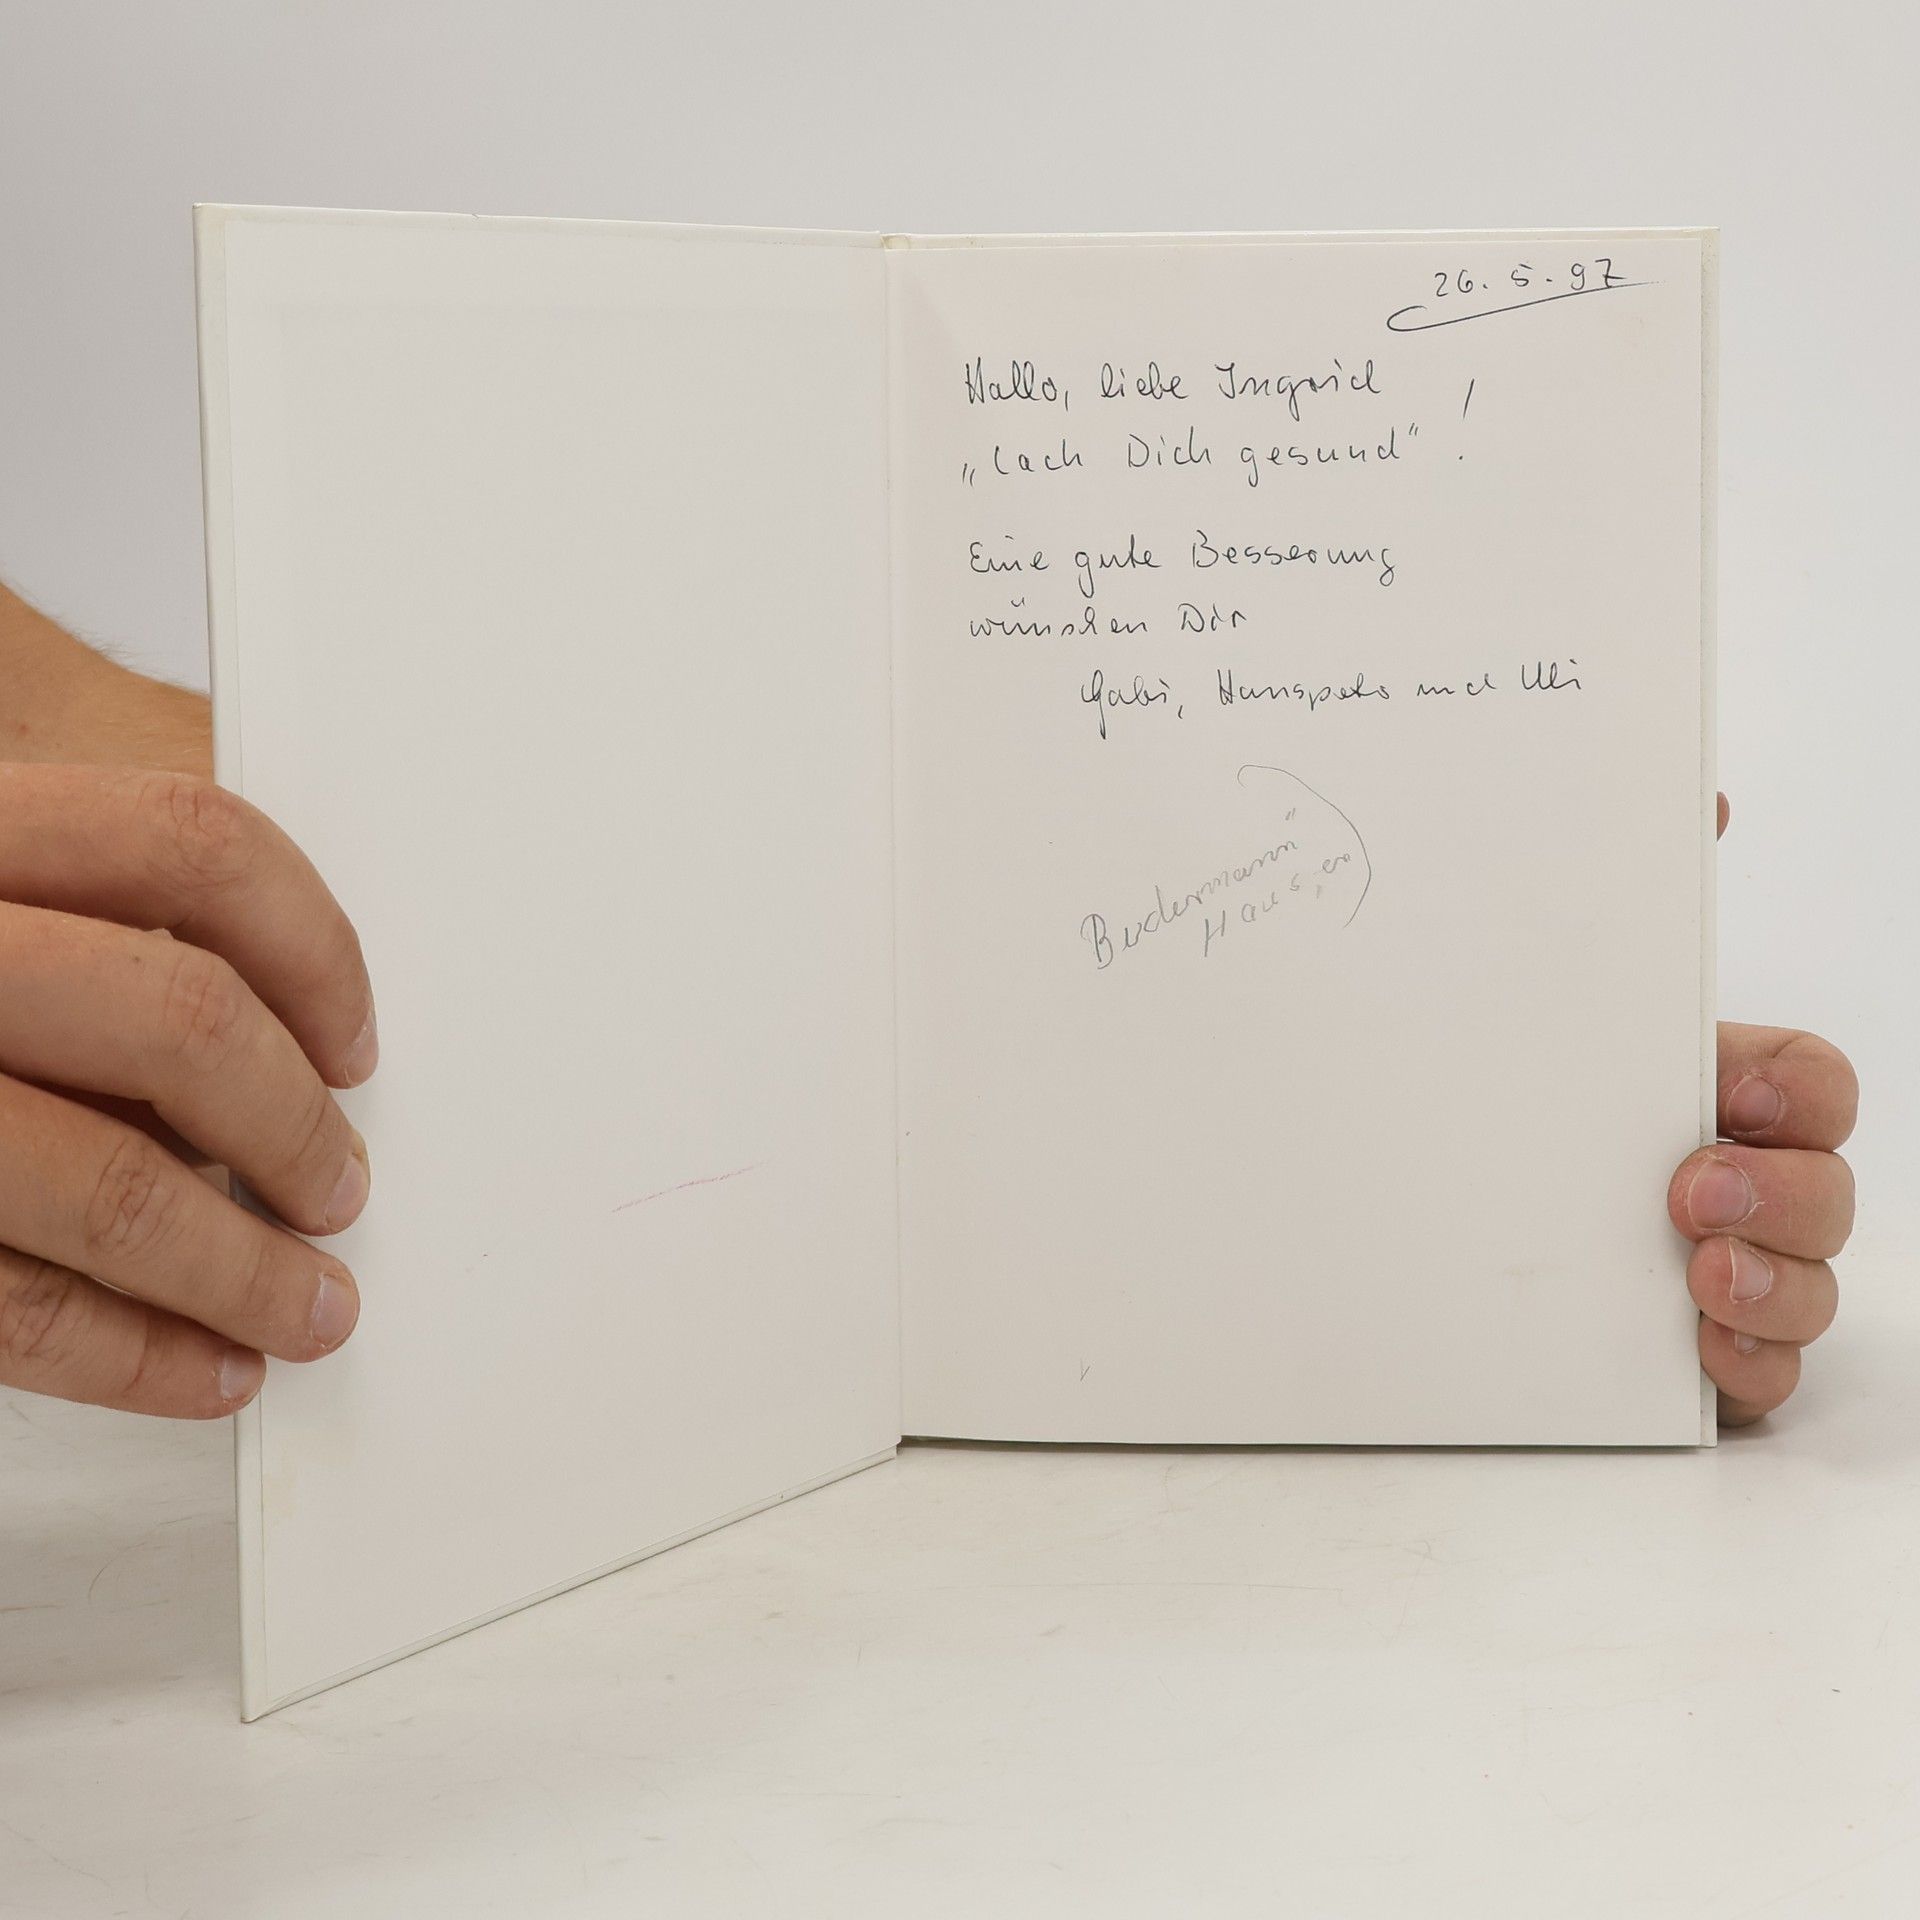 26. 5. 97
Hallo, liebe Ingrid
„Lach Dich gesund" !
Eine gute Besserung
wünschen Dir
Gabi, Hanspeter und Uli